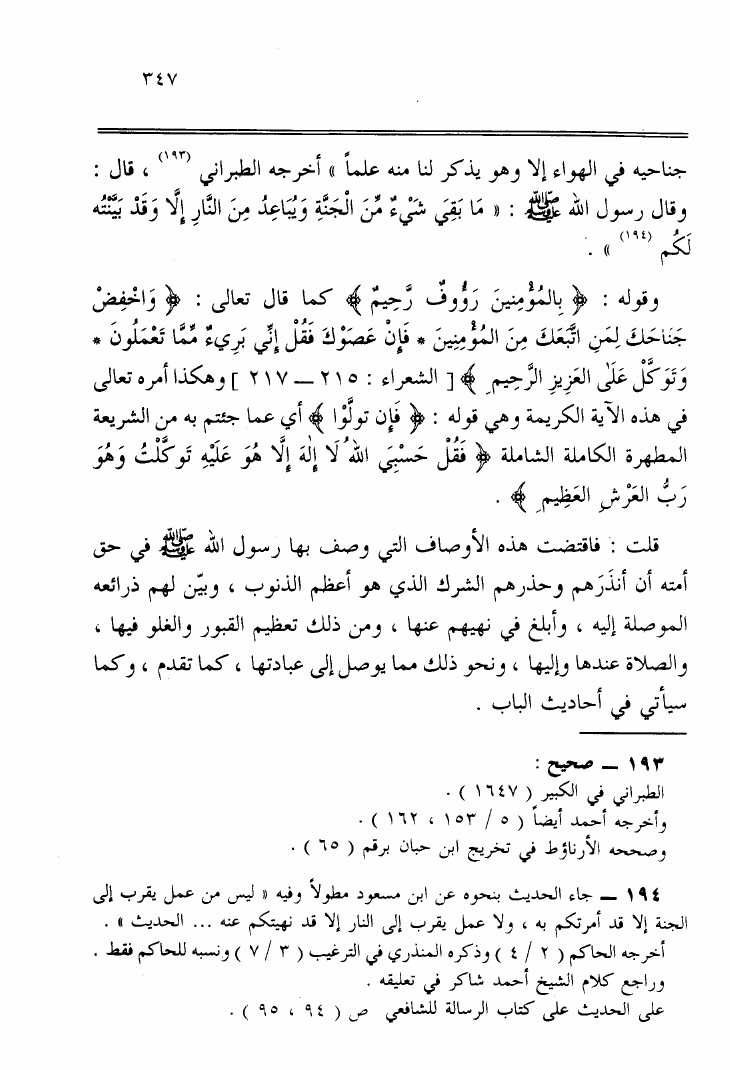 ٣٤٧
جناحيه في الهواء إلا وهو يذكر لنا منه علماً » أخرجه الطبراني (١٩٣) ، قال :
وقال رسول الله ﷺ : « مَا بَقِيَ شَيْءٌ مِّنَ الْجَنَّةِ وَيُبَاعِدُ مِنَ النَّارِ إِلَّا وَقَدْ بَيَّنْتُه
لَكُم (١٩٤) » .
وقوله : ﴿ بِالمُؤْمِنينَ رَؤُوفٌ رَّحِيمٌ ﴾ كما قال تعالى : ﴿ وَاخْفِضْ
جَنَاحَكَ لِمَنِ اتَّبَعَكَ مِنَ المُؤْمِنِينَ * فَإِنْ عَصَوْكَ فَقُلْ إِنِّي بَرِيءٌ مِّمَّا تَعْمَلُونَ *
وَتَوَكَّلْ عَلَى العَزِيزِ الرَّحِيمِ ﴾ [ الشعراء : ٢١٥ ــ ٢١٧ ] وهكذا أمره تعالى
في هذه الآية الكريمة وهي قوله : ﴿ فَإِن تولَّوْا ﴾ أي عما جئتم به من الشريعة
المطهرة الكاملة الشاملة ﴿ فَقُلْ حَسْبِيَ اللهُ لَا إِلٰهَ إِلَّا هُوَ عَلَيْهِ تَوكَّلْتُ وَهُوَ
رَبُّ العَرْشِ العَظِيمِ ﴾ .
قلت : فاقتضت هذه الأوصاف التي وصف بها رسول الله ﷺ في حق
أمته أن أنذَرَهم وحذرهم الشرك الذي هو أعظم الذنوب ، وبيّن لهم ذرائعه
الموصلة إليه ، وأبلغ في نهيهم عنها ، ومن ذلك تعظيم القبور والغلو فيها ،
والصلاة عندها وإليها ، ونحو ذلك مما يوصل إلى عبادتها ، كما تقدم ، وكما
سيأتي في أحاديث الباب .
١٩٣ ــ صحيح :
الطبراني في الكبير ( ١٦٤٧ ) .
وأخرجه أحمد أيضاً ( ٥ / ١٥٣ ، ١٦٢ ) .
وصححه الأرناؤط في تخريج ابن حبان برقم ( ٦٥ ) .
١٩٤ ــ جاء الحديث بنحوه عن ابن مسعود مطولاً وفيه « ليس من عمل يقرب إلى
الجنة إلا قد أمرتكم به ، ولا عمل يقرب إلى النار إلا قد نهيتكم عنه ... الحديث » .
أخرجه الحاكم ( ٢ / ٤ ) وذكره المنذري في الترغيب ( ٣ / ٧ ) ونسبه للحاكم فقط .
وراجع كلام الشيخ أحمد شاكر في تعليقه .
على الحديث على كتاب الرسالة للشافعي ص ( ٩٤ ، ٩٥ ) .